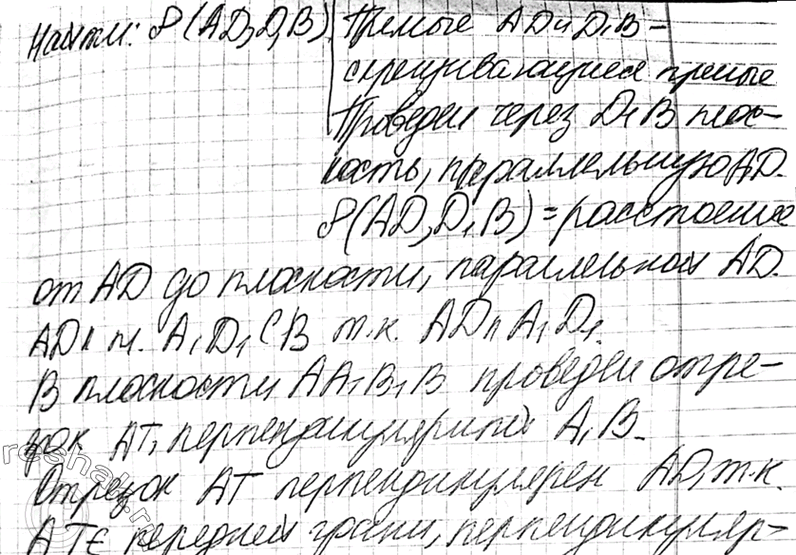 Найти: ρ(AD, D₁B) Прямые AD и D₁B –
скрещивающиеся прямые
Проведем через D₁B плос-
кость, параллельную AD.
ρ(AD, D₁B) = расстояние
от AD до плоскости, параллельной AD.
AD ∥ п. A₁D₁CB т.к. AD ∥ A₁D₁.
В плоскости AA₁B₁B проведем отре-
зок AT, перпендикулярный A₁B.
Отрезок AT перпендикулярен AD, т.к.
AT ∈ передней грани, перпендикуляр-
reshak.ru